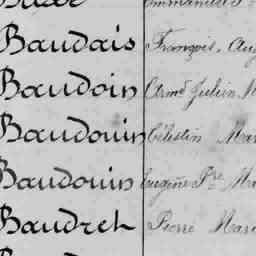 Baudais François, Aug
Baudoin Armd Julien M
Baudouin Célestin Mar
Baudouin Eugène Pre Ma
Baudret Pierre Marie